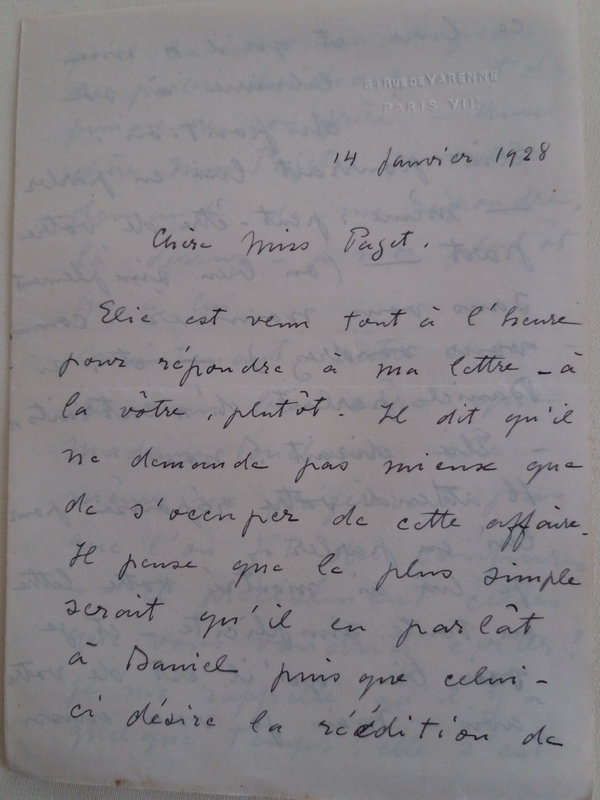 61 RUE DE VARENNE
PARIS VIIe
14 janvier 1928
Chère Miss Paget.
Elie est venu tout à l'heure
pour répondre à ma lettre - à
la vôtre, plutôt. Il dit qu'il
ne demande pas mieux que
de s'occuper de cette affaire.
Il pense que le plus simple
serait qu'il en parlât
à Daniel puisque celui-
ci désire la réédition de